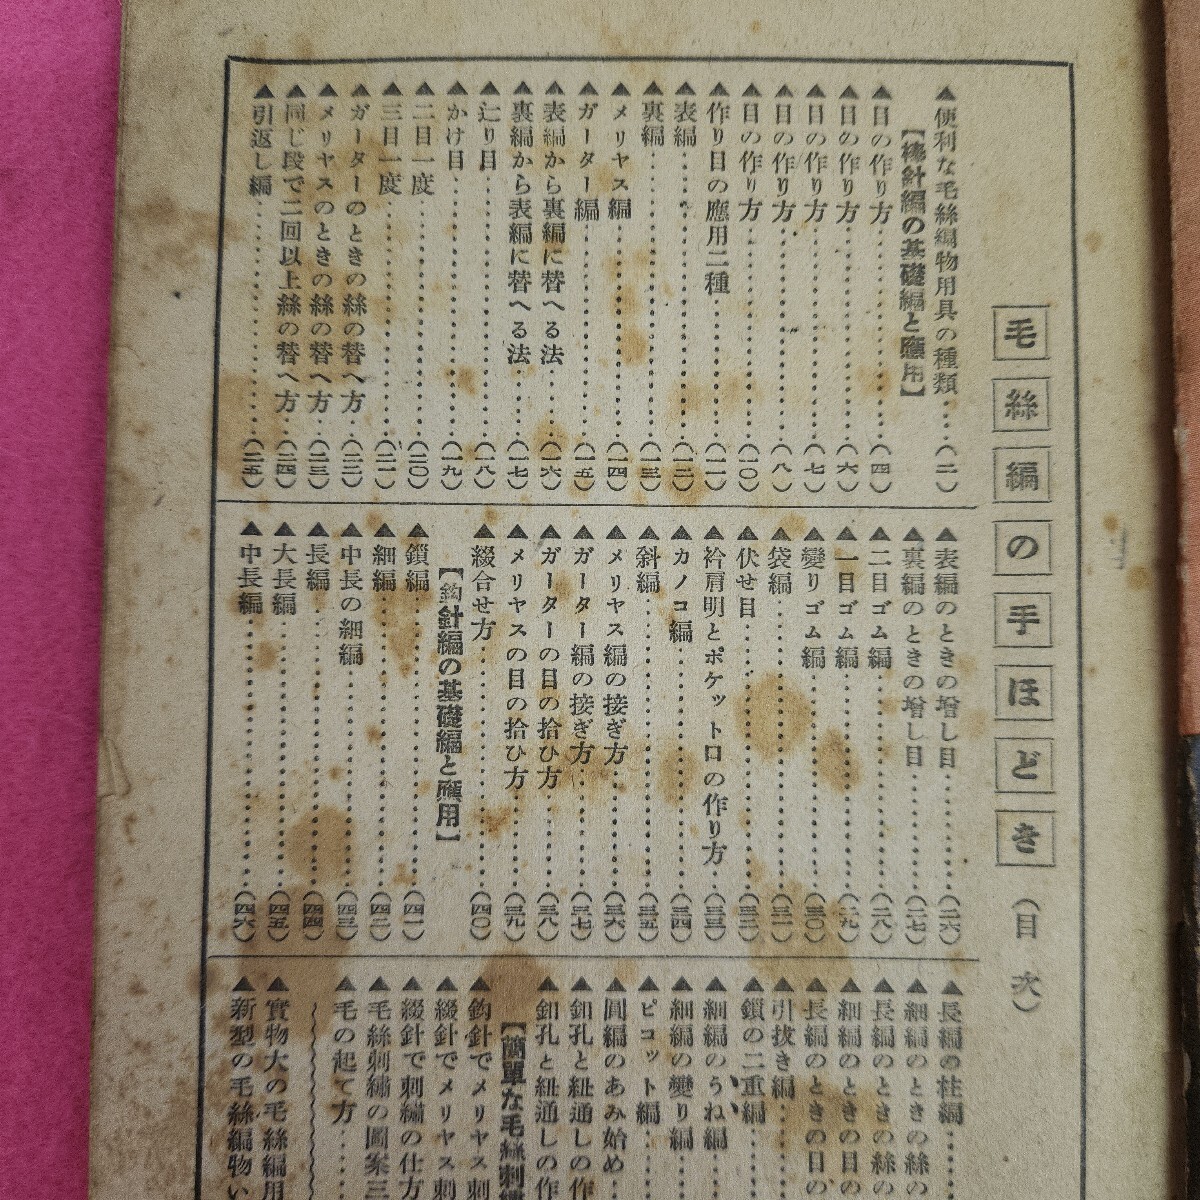 毛絲編の手ほどき(目次)
▲便利な毛絲編物用具の種類……(二)
【棒針編の基礎編と應用】
▲目の作り方……(四)
▲目の作り方……(六)
▲目の作り方……(七)
▲目の作り方……(八)
▲目の作り方……(一〇)
▲作り目の應用二種……(一一)
▲表編……(一二)
▲裏編……(一三)
▲メリヤス編……(一四)
▲ガーター編……(一五)
▲表編から裏編に替へる法……(一六)
▲裏編から表編に替へる法……(一七)
▲辷り目……(一八)
▲かけ目……(一九)
▲二目一度……(二〇)
▲三目一度……(二一)
▲ガーターのときの絲の替へ方…(二二)
▲メリヤスのときの絲の替へ方…(二三)
▲同じ段で二回以上絲の替へ方…(二四)
▲引返し編……(二五)
▲表編のときの增し目……(二六)
▲裏編のときの增し目……(二七)
▲二目ゴム編……(二八)
▲一目ゴム編……(二九)
▲變りゴム編……(三〇)
▲袋編……(三一)
▲伏せ目……(三二)
▲衿肩明とポケット口の作り方…(三三)
▲カノコ編……(三四)
▲斜編……(三五)
▲メリヤス編の接ぎ方……(三六)
▲ガーター編の接ぎ方……(三七)
▲ガーターの目の拾ひ方……(三八)
▲メリヤスの目の拾ひ方……(三九)
▲綴合せ方……(四〇)
【鈎針編の基礎編と應用】
▲鎖編……(四一)
▲細編……(四二)
▲中長の細編……(四三)
▲長編……(四四)
▲大長編……(四五)
▲中長編……(四六)
▲長編の柱編……
▲細編のときの絲の
▲長編のときの絲の
▲細編のときの目の
▲長編のときの目の
▲引拔き編……
▲鎖の二重編……
▲細編のうね編……
▲細編の變り編……
▲ピコット編……
▲圓編のあみ始め…
▲釦孔と紐通しの作
▲釦孔と紐通しの作
【簡單な毛絲刺繡
▲鈎針でメリヤス刺
▲綴針でメリヤス刺
▲綴針で刺繡の仕方
▲毛絲刺繡の圖案三
▲毛の起て方……
▲實物大の毛絲編用
▲新型の毛絲編物い